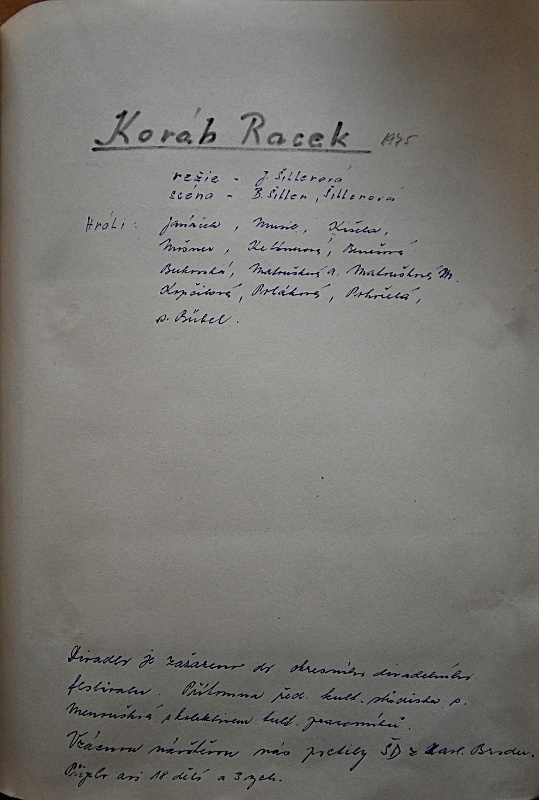 Koráb Racek 1975
režie - J. Šillerová
scéna - B. Šiller, Šillerová
Hráli: Janáček, Musil, Kišela,
Mišner, Benešová
Bukovská, Matoušková A. Matoušková M.
Kopčilová, Poláková, Pokorná,
p. Bübel.
Divadlo je zařazeno do okresního divadelního
festivalu. Přítomna řed. kult. střediska s.
Menoušková s kolektivem kult. pracovníků.
Vzácnou návštěvou nás poctily ŠD z Karl. Brodu.
Přijelo asi 18 dětí a 3 vych.